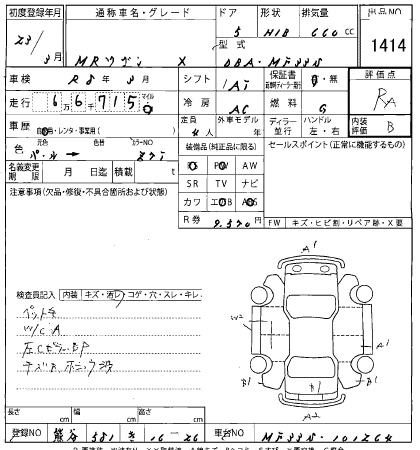 初度登録年月 通称車名・グレード ドア 形状 排気量 出品NO
23/3月 MRワゴン X 5 H/B 660cc 1414
型式 DBA-MF33S
車検 R5年3月 シフト IAT 保証書 有・無 評価点 RA
走行 66715 マイル km 冷房 AC 燃料 G 内装評価 B
車歴 自家用・レンタ・事業用( ) 定員 4人 外車モデル年 ディーラー・並行 ハンドル 左・右
色 元色 パール → 色替 カラーNO Z7T
装備品(純正品に限る) セールスポイント(正常に機能するもの)
名義変更期限 月 日迄 積載 t
PS PW AW
注意事項(欠品・修復・不具合箇所および状態)
SR TV ナビ
カワ エアB ABS
R券 9,570円
FW キズ・ヒビ割・リペア跡・X要
検査員記入 内装 キズ・汚レ・コゲ・穴・スレ・キレ
ペット毛
W/C A
左Cピラー BP
A1
W2
A1
B1
B1
B1
A2
長さ cm 幅 cm 高さ cm
登録NO 熊谷 581 き 16-26 車台NO MF33S-101264